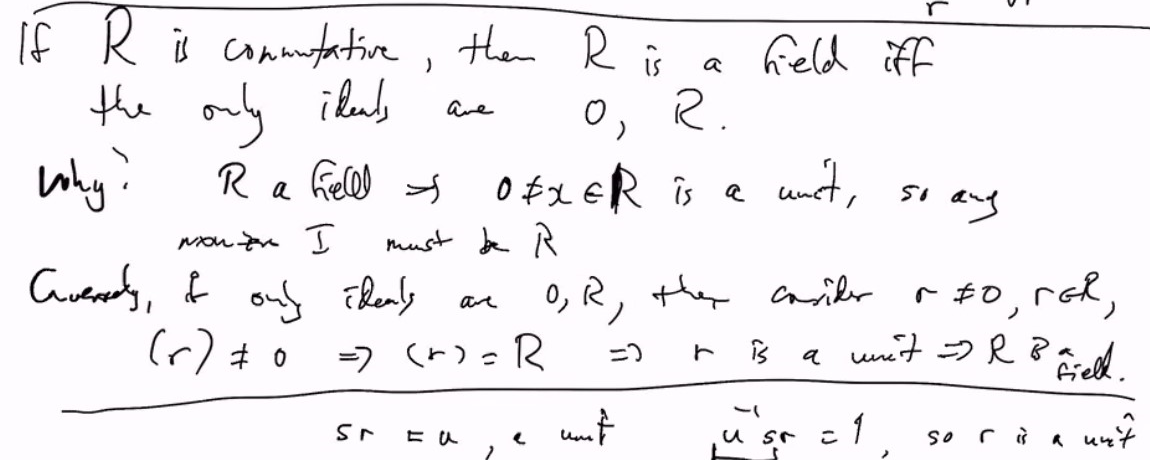 r
If R is commutative, then R is a field iff
the only ideals are 0, R.
Why? R a field ⇒ 0 ≠ x ∈ R is a unit, so any
nonzero I must be R
Conversely, if only ideals are 0, R, then consider r ≠ 0, r ∈ R,
(r) ≠ 0 ⇒ (r) = R ⇒ r is a unit ⇒ R is a field.
sr = u, a unit u⁻¹sr = 1, so r is a unit